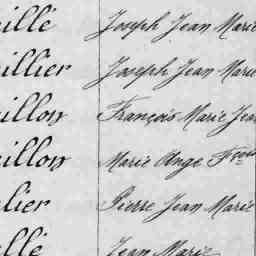 aillé Joseph Jean Marie
illier Joseph Jean Marie
aillon François Marie Jean
aillon Marie Ange Fçois
lier Pierre Jean Marie
ellé Jean Marie